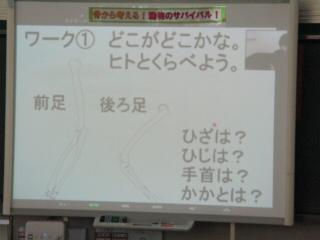 骨から考える！動物のサバイバル！
ワーク① どこがどこかな。
ヒトとくらべよう。
前足 後ろ足
ひざは？
ひじは？
手首は？
かかとは？